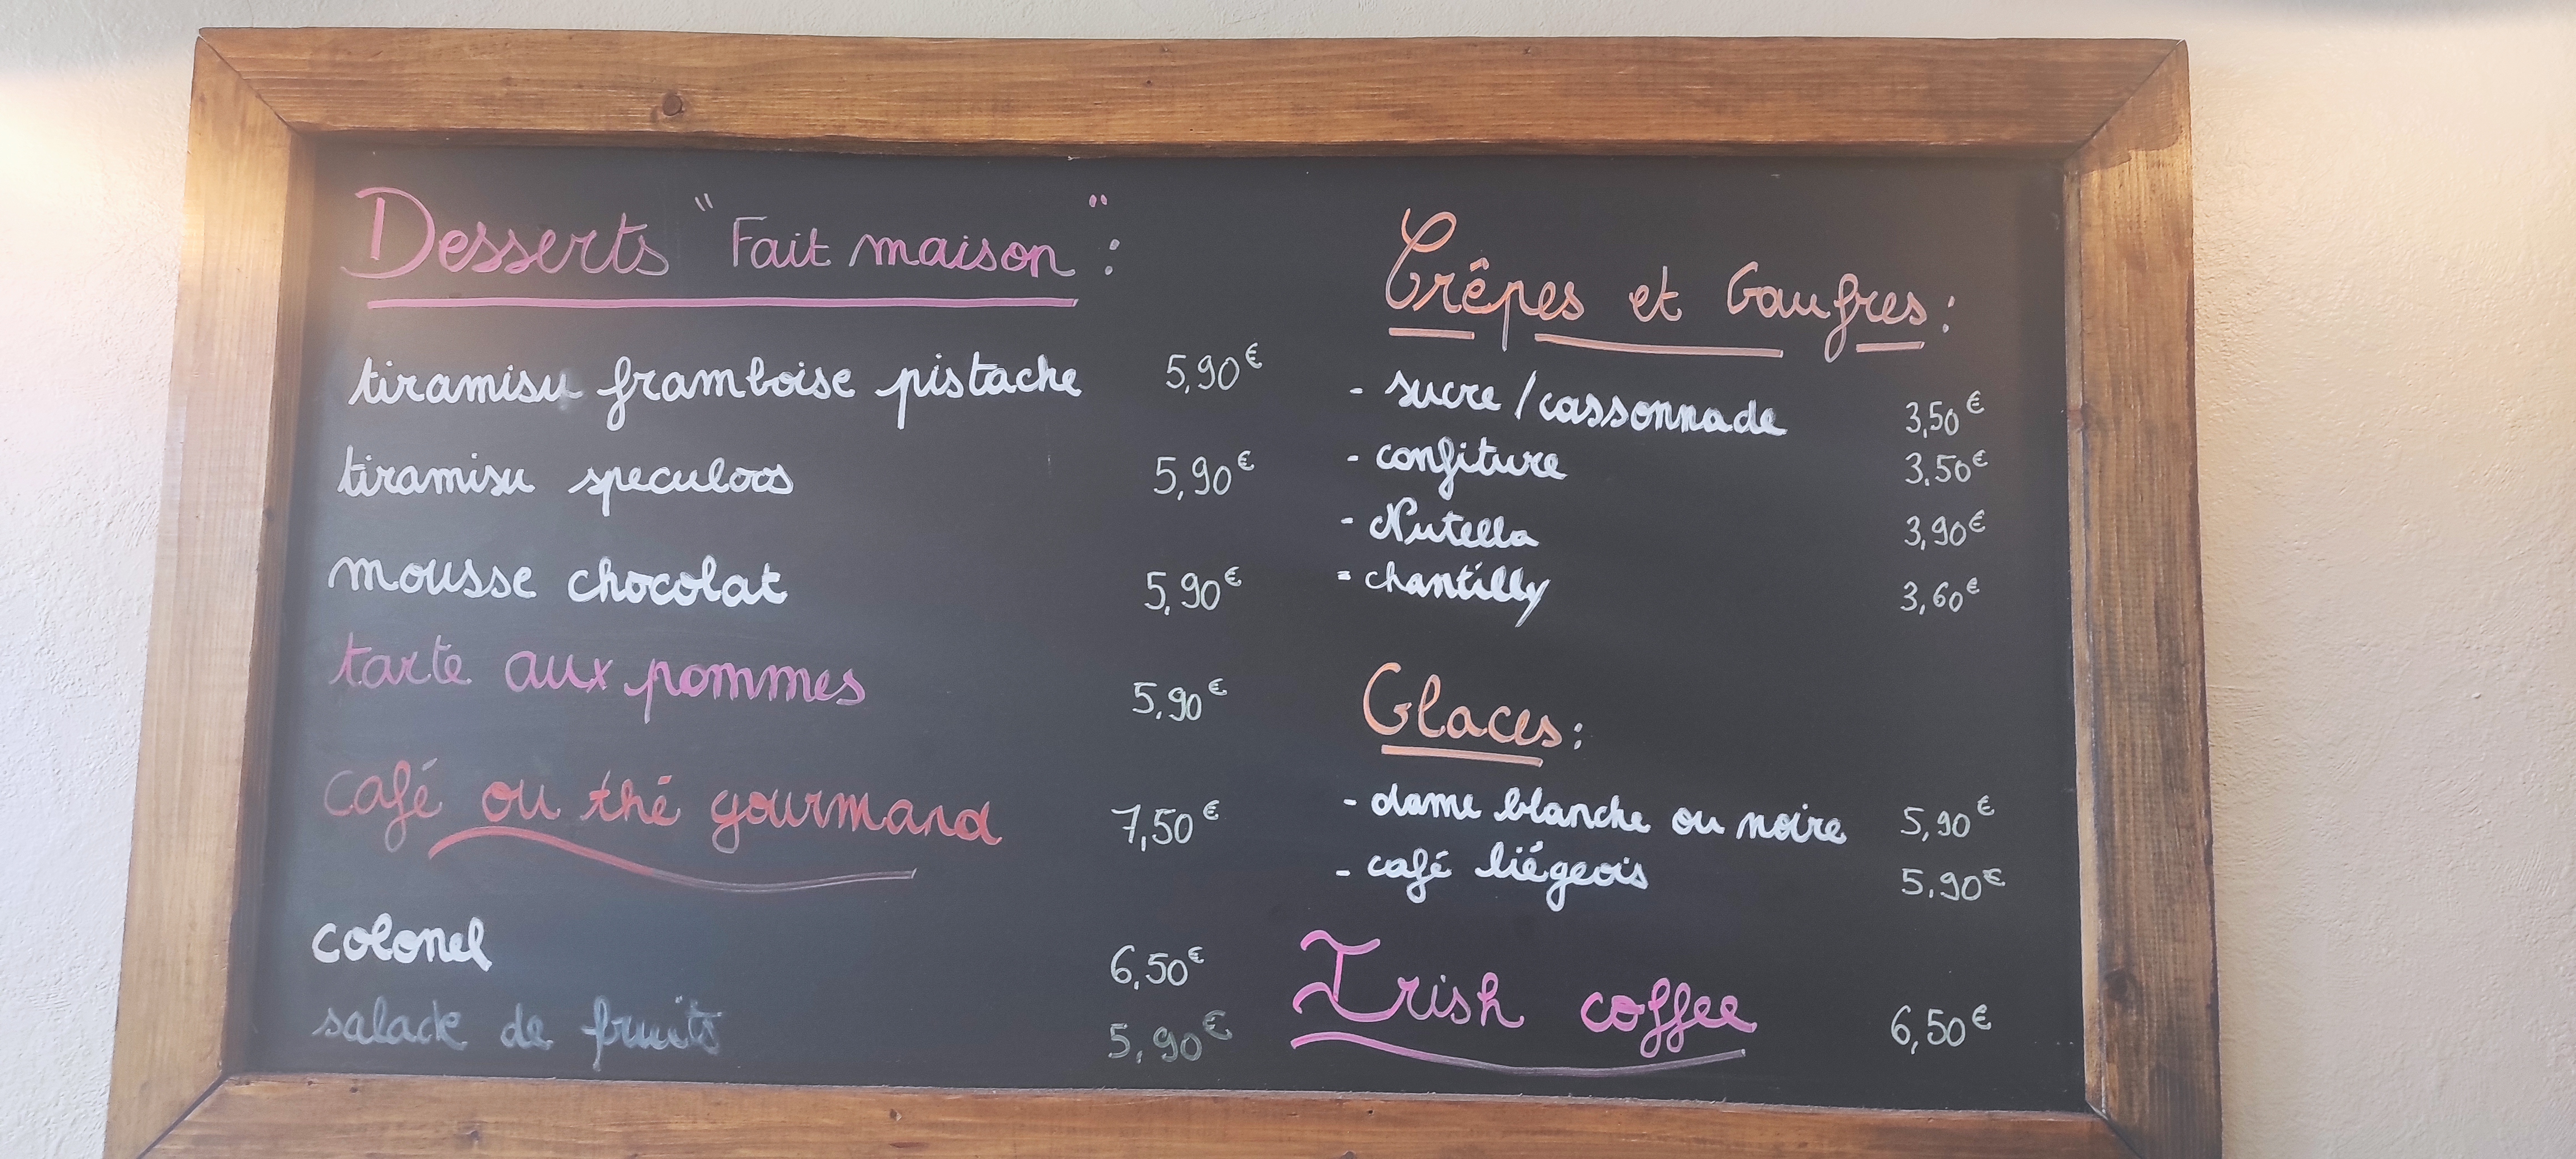 Desserts "Fait maison":
tiramisu framboise pistache 5,90€
tiramisu speculoos 5,90€
mousse chocolat 5,90€
tarte aux pommes 5,90€
café ou thé gourmand 7,50€
colonel 6,50€
salade de fruits 5,90€
Crêpes et Gaufres:
- sucre/cassonnade 3,50€
- confiture 3,50€
- Nutella 3,90€
- chantilly 3,60€
Glaces:
- dame blanche ou noire 5,90€
- café liégeois 5,90€
Irish coffee 6,50€